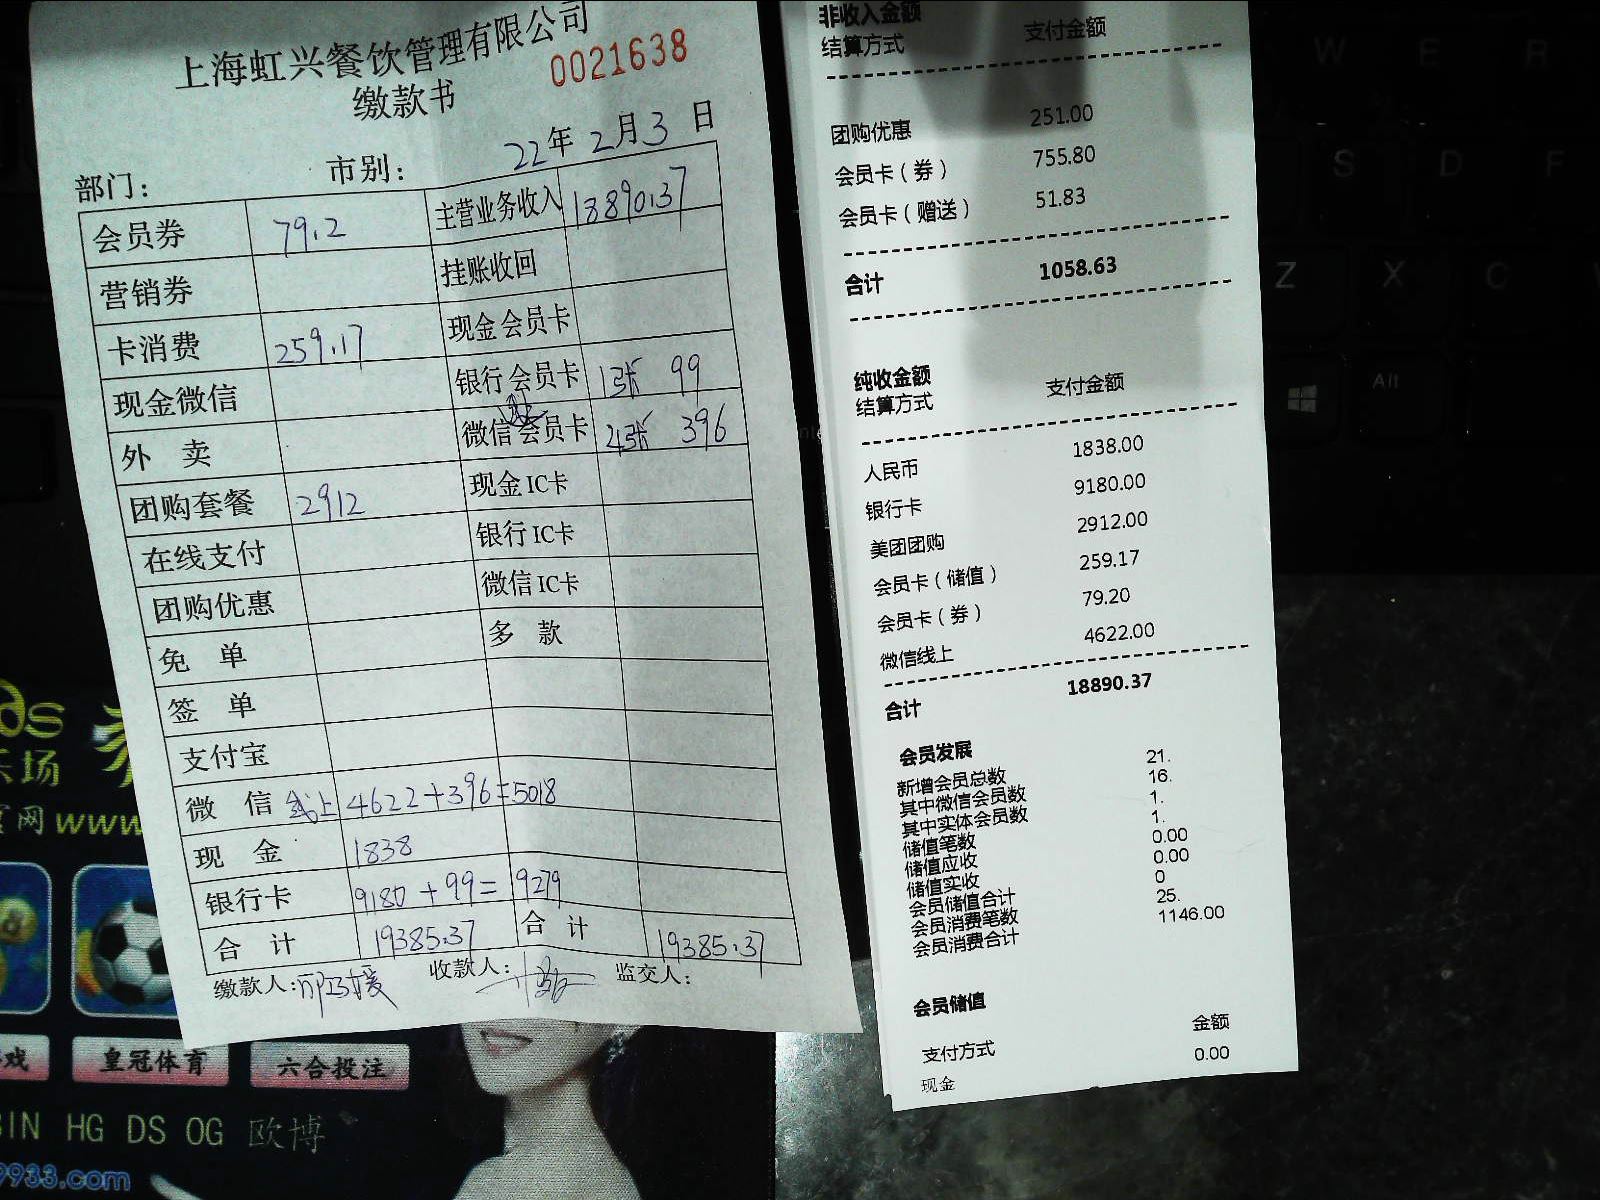 上海虹兴餐饮管理有限公司
0021638
缴款书
22年 2月 3 日
部门： 市别：
会员券 79.2 主营业务收入 18890.37
营销券 挂账收回
卡消费 259.17 现金会员卡
现金微信 银行会员卡 1张 99
外 卖 微信会员卡 4张 396
团购套餐 2912 现金IC卡
在线支付 银行IC卡
团购优惠 微信IC卡
免 单 多 款
签 单
支付宝
微 信 线上 4622+396=5018
现 金 1838
银行卡 9180+99= 9279
合 计 19385.37 合 计 19385.37
缴款人： 收款人： 监交人：
非收入金额
结算方式 支付金额
团购优惠 251.00
会员卡（券） 755.80
会员卡（赠送） 51.83
合计 1058.63
纯收金额
结算方式 支付金额
人民币 1838.00
银行卡 9180.00
美团团购 2912.00
会员卡（储值） 259.17
会员卡（券） 79.20
微信线上 4622.00
合计 18890.37
会员发展
新增会员总数 21.
其中微信会员数 16.
其中实体会员数 1.
储值笔数 1.
储值应收 0.00
储值实收 0.00
会员储值合计 0
会员消费笔数 25.
会员消费合计 1146.00
会员储值
支付方式 金额
现金 0.00
W E R
S D F
Z X C
Alt
ds
乐场
网www
戏 皇冠体育 六合投注
BIN HG DS OG 欧博
9933.com